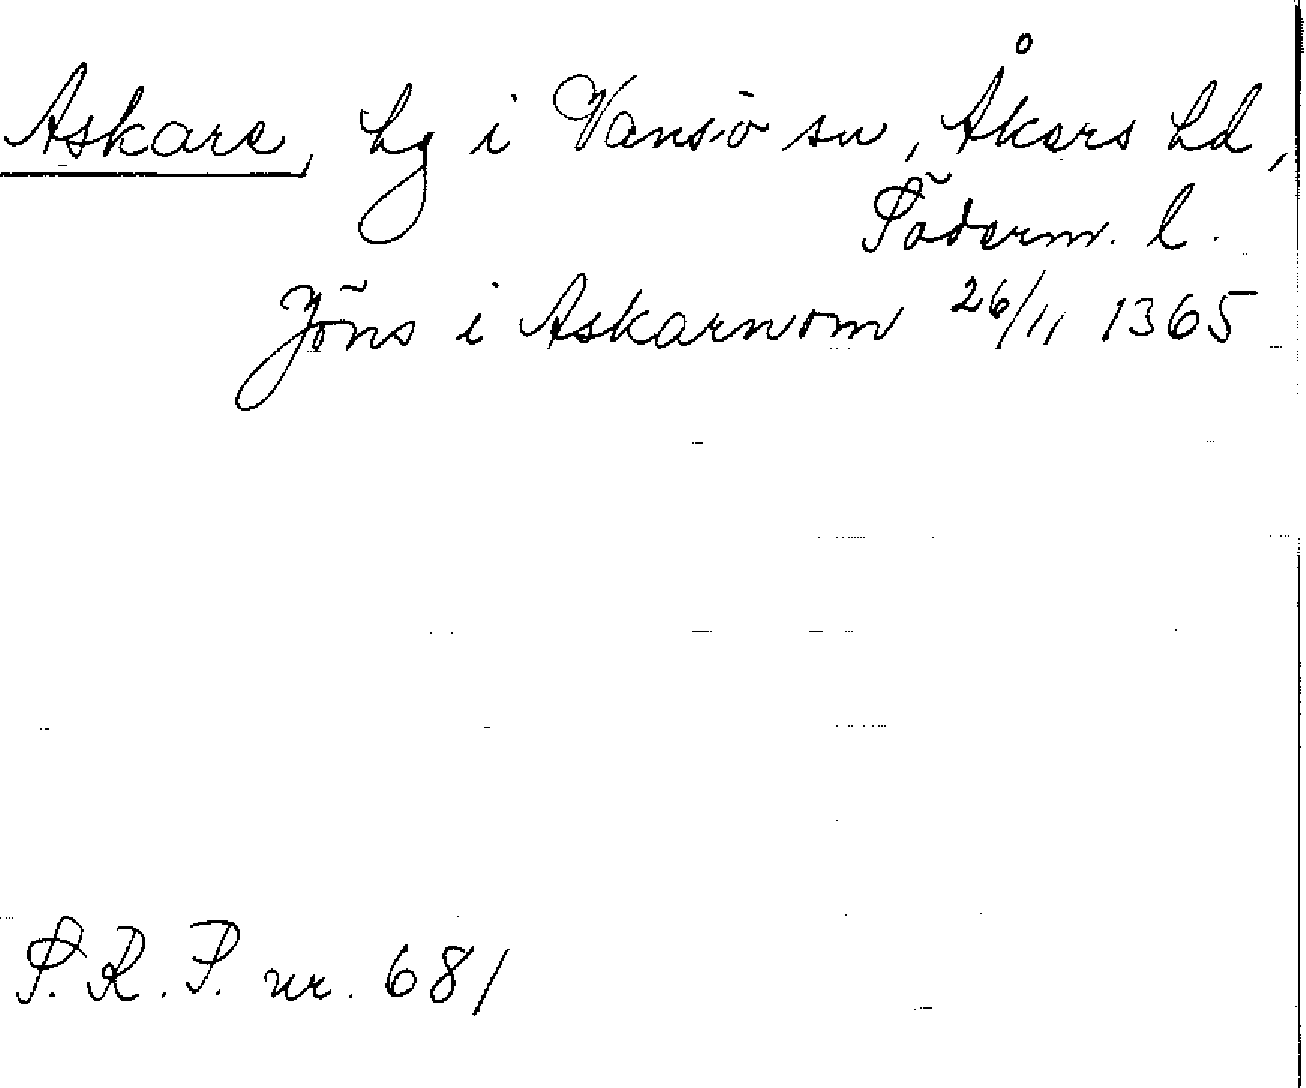 Askare, hg i Vansö sn, Åkers hd,
Söderm. l.
Jöns i Askarnom 26/11 1365
S.R.P. nr. 681